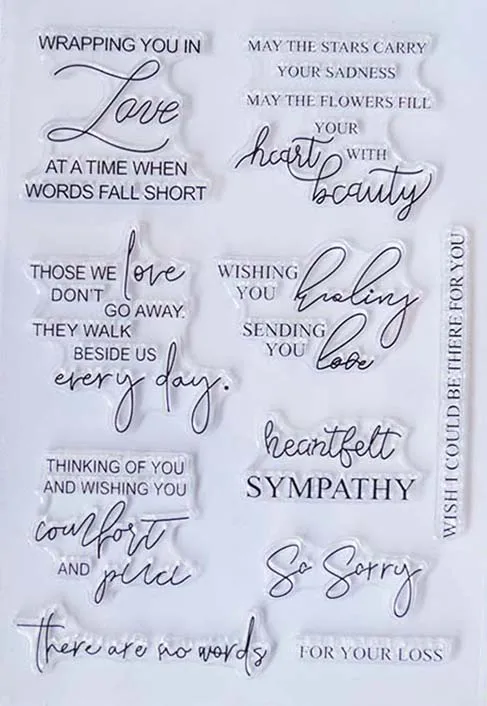 WRAPPING YOU IN
Love
AT A TIME WHEN
WORDS FALL SHORT
MAY THE STARS CARRY
YOUR SADNESS
MAY THE FLOWERS FILL
YOUR
heart WITH
beauty
THOSE WE love
DON'T
GO AWAY.
THEY WALK
BESIDE US
every day.
WISHING
YOU healing
SENDING
YOU love
WISH I COULD BE THERE FOR YOU
heartfelt
SYMPATHY
THINKING OF YOU
AND WISHING YOU
comfort
AND peace
So Sorry
there are no words
FOR YOUR LOSS